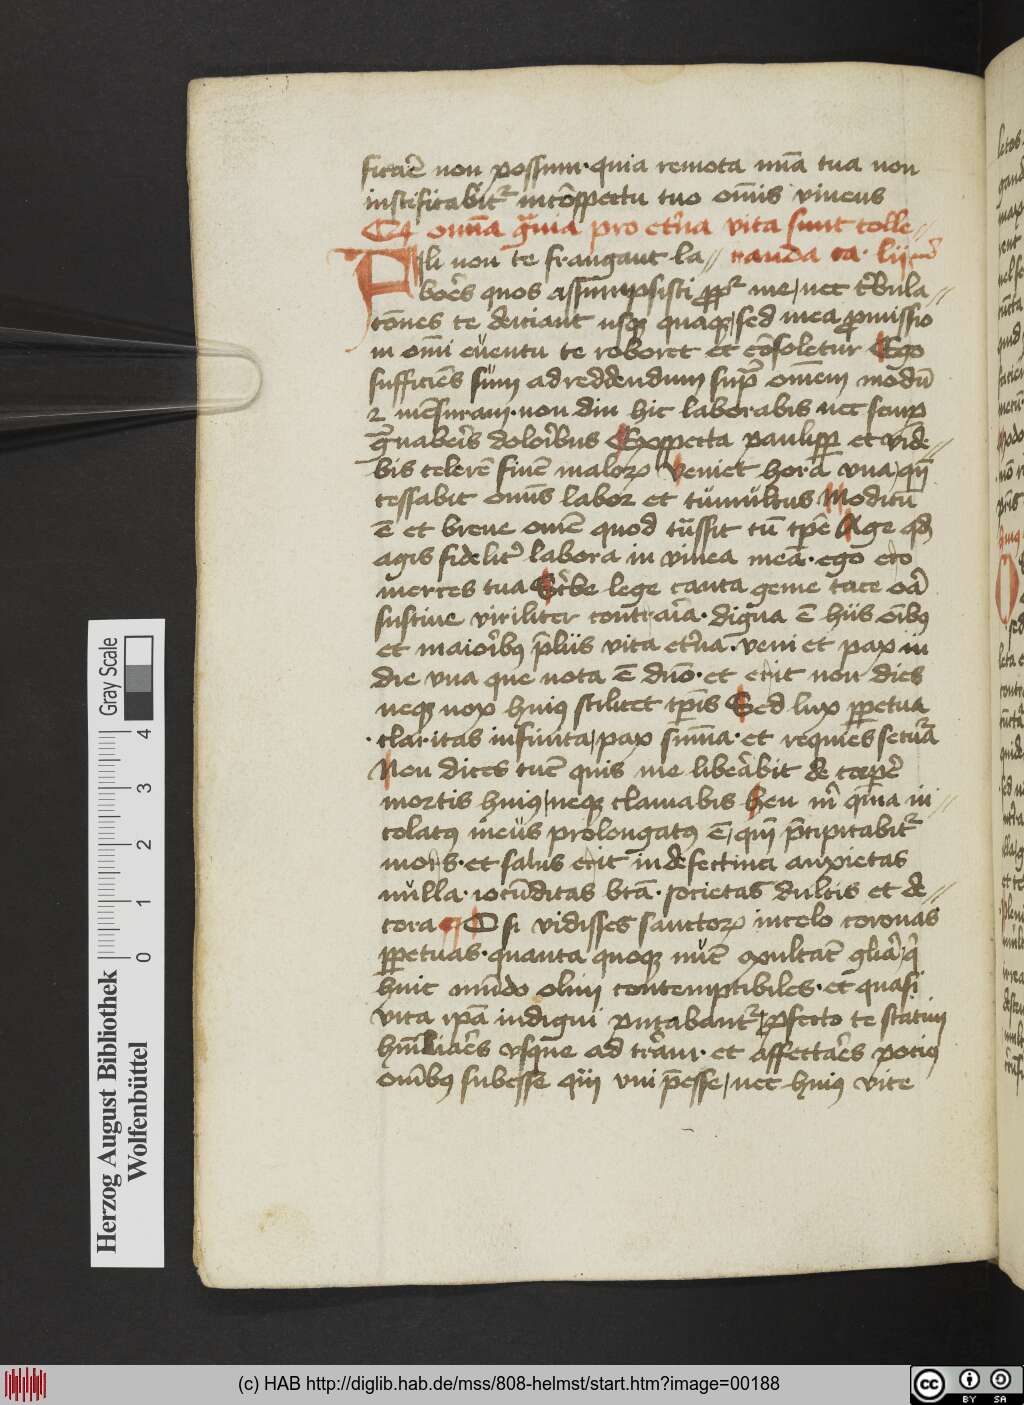 ficare᷑ non possum · quia remota mi̅a tua non
iustificabit᷑ in co̅spectu tuo om̅is viuens
Qᷓ om̅ia gᷓuia pro et̓na vita sunt tolle //
Fili non te frangant la // randa ca · lii
boѐs quos assumpsisti pp̅ me / nec t̓bula //
co̅nes te deiciant usqꝫ quaqꝫ / sed mea ꝓmissio
in om̅i euentu te roboret et co̅soletur Ego
sufficie̅s sum ad reddendum sup̓ om̅em modu̅
⁊ me̅suram · non diu hic laborabis nec semp̲
gᷓuaber̓is dolor̓ibus Exspecta paulisp̲ et vide //
bis celere̅ fine̅ maloꝝ veniet hora vna / qn̅
cessabit om̅is labor et tumultus Modicu̅
e̅ et breue om̅e quod tᷓnsit cu̅ tp̅e Age qd̅
agis fidelit̓ labora in vinea mea · ego ero
merces tua Sc̓be lege canta geme tace oᷓ
sustine viriliter contraᷓia · digna e̅ hiis oi̅bꝰ
et maior̓ibꝰ p̅liis vita et̓na · veni et pax in
die vna que nota e̅ dn̅o · et erit non dies
neqꝫ nox huiꝰ scilicet tp̅is Sed lux p̲petua
claritas infinita / pax summa · et requies secura
Non dices tu̅c quis me liberabit de corp̲e
mortis huiꝰ / neqꝫ clamabis Heu m̓ qm̅a in //
colatꝰ meus prolongatꝰ e̅ / qm̅ p̅cipitabit᷑
mors · et salus erit indefectiua anxietas
nulla · iocu̅ditas bt̅a · societas dulcis et de //
cora O si vidisses sanctoꝝ in celo coronas
p̲petuas · quanta quoqꝫ nu̅c exultat gl̅ia / q̓
huic mundo olim contemptibiles · et quasi
vita ip̅a indigni putabant᷑ / ꝓfecto te statim
humiliares vsque ad terram · et affectares potiꝰ
om̅ibꝰ subesse qᷓ vni p̅esse / nec huiꝰ vite
Herzog August Bibliothek
Wolfenbüttel
Gray Scale
0 1 2 3 4
(c) HAB http://diglib.hab.de/mss/808-helmst/start.htm?image=00188
cc BY SA